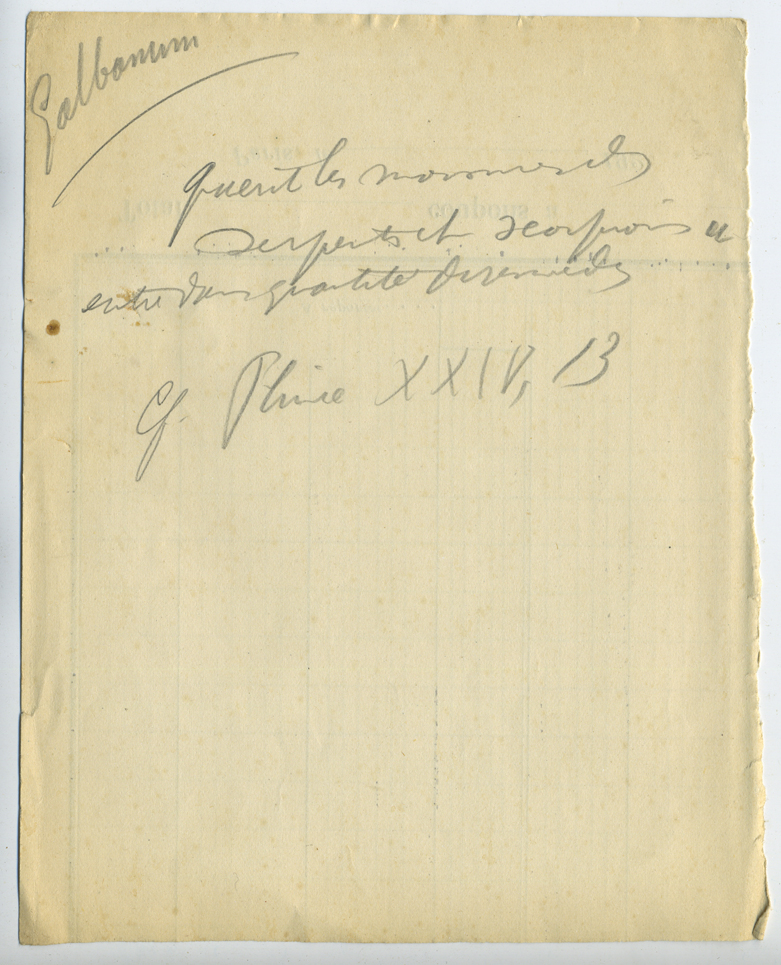 Galbanum
guerit les morsures des
serpents et scorpions et
entre dans quantité de remèdes
Cf. Pline XXIV, 13